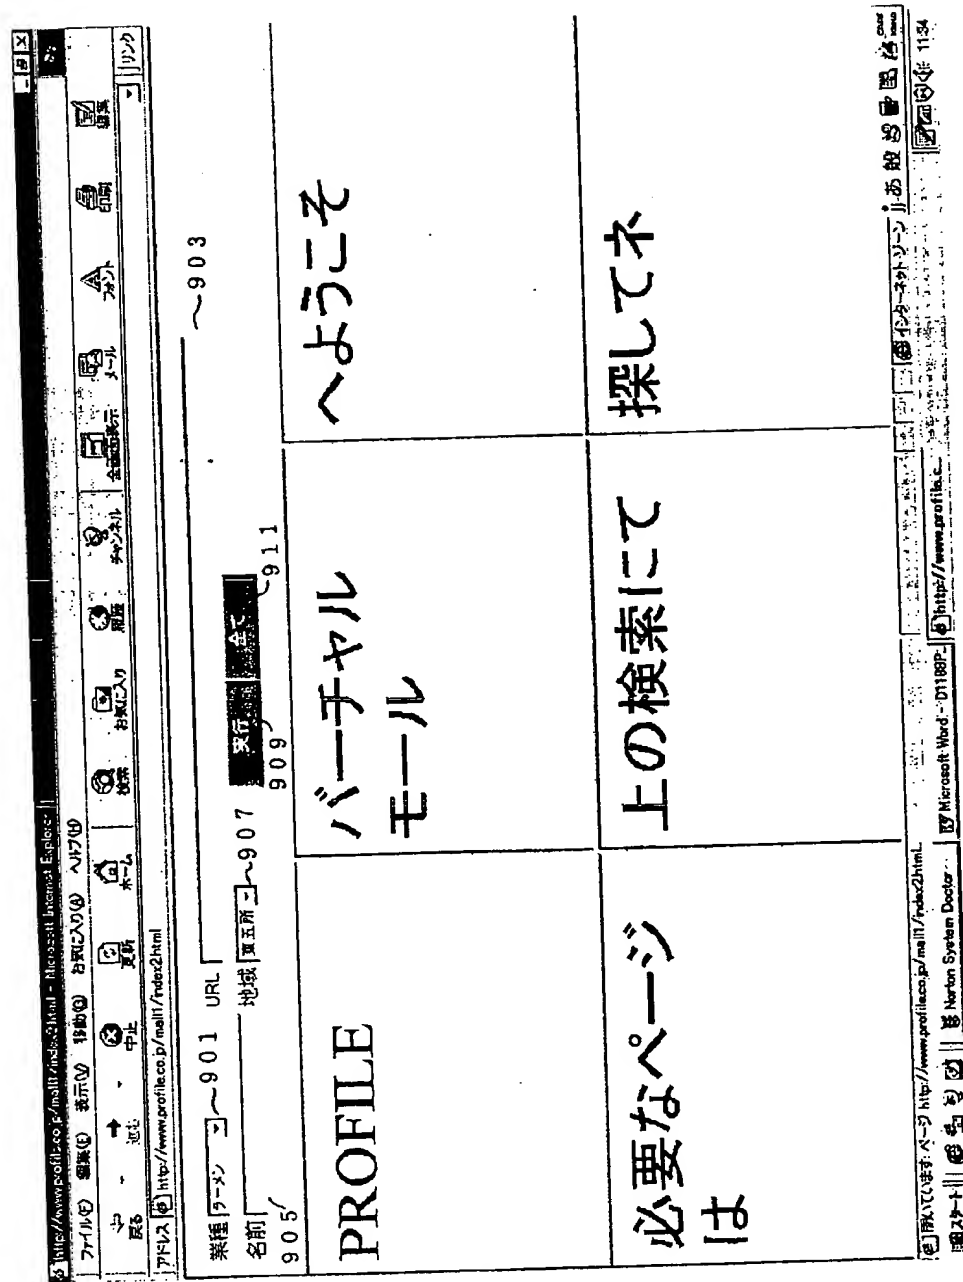 http://www.profile.co.jp/mall1/index2.html - Microsoft Internet Explorer
ファイル(F) 編集(E) 表示(V) 移動(G) お気に入り(A) ヘルプ(H)
戻る 進む 中止 更新 ホーム 検索 お気に入り 履歴 チャンネル 全画面表示 メール フォント 印刷 編集
アドレス http://www.profile.co.jp/mall1/index2html リンク
業種 ラーメン ~901 URL ~903
名前 地域 東五所 ~907 実行 全て
905 909 911
PROFILE
バーチャル
モール
へようこそ
必要なページ
は
上の検索にて
探してネ
開いています: ページ http://www.profile.co.jp/mall1/index2html. インターネット ゾーン
あ 般
スタート Norton System Doctor Microsoft Word - D1188P_ http://www.profile.c... 11:34